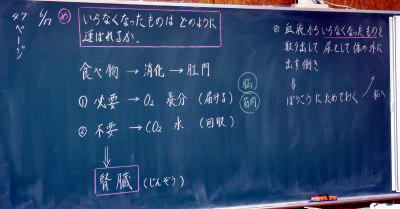 47ページ
6/17 め いらなくなったものは どのように
運ばれるか.
食べ物 → 消化 → 肛門
① 必要 → O₂ 養分 (届ける) 脳 筋肉
② 不要 → CO₂ 水 (回収)
⇓
腎臓 (じんぞう)
血液からいらなくなったものを
取り出して 尿として 体の外に
出す働き
⇓
ぼうこうに ためておく